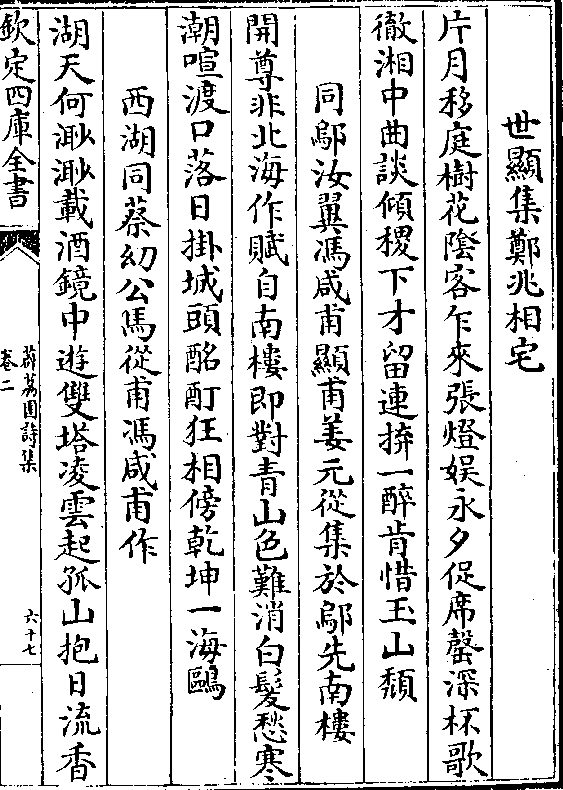 世顯集鄭兆相宅
片月移庭樹花隂客乍來張燈娱永夕促席罄深杯歌
徹湘中曲談傾稷下才留連拚一醉肯惜玉山頽
同鄔汝翼馮咸甫顯甫姜元從集於鄔先南樓
開尊非北海作賦自南樓即對青山色難消白髪愁寒
潮喧渡口落日掛城頭酩酊狂相傍乾坤一海鷗
西湖同蔡幼公馬從甫馮咸甫作
湖天何渺渺載酒鏡中遊雙塔凌雲起孤山抱日流香
欽定四庫全書
薜荔園詩集
卷二
六十七